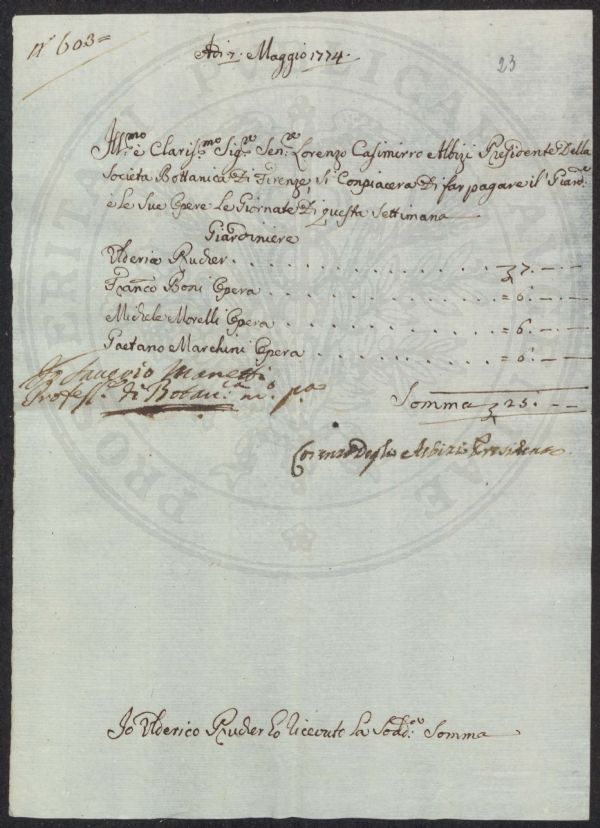 n° 603=
Adi 7. Maggio 1774.
23
Ill:mo è Claris:mo Sig:re Sen:re Lorenzo Casimirro Albizi Presidente Della
Società Bottanica Di Firenze, Si Conpiacera Di far pagare il Giard:e
è le Sue Opere le Giornate Di questa Settimana
Giardiniere
Ulderico Rucher . . . . . 7. — —
Fran:co Boni Opera . . . . . = 6. — —
Michele Morelli Opera . . . . . = 6. — —
Gaetano Marchini Opera . . . . . = 6. — —
Io Saverio Manetti
Profess:e di Botan:ca m:o p:a
Somma 25. — —
Lorenzo Degli Albizi Presidente
Io Ulderico Rucher ho ricevuto la Sodd:a Somma